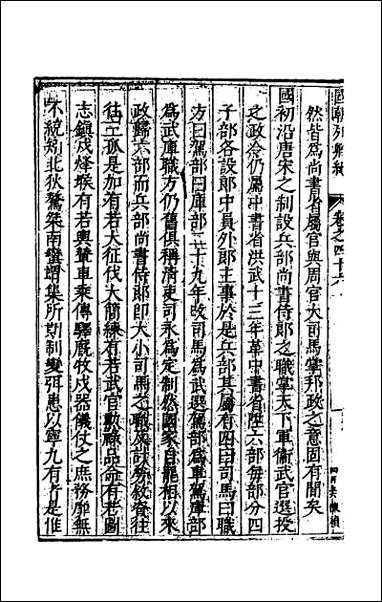 國朝列卿紀 卷之四十六
然皆為尚書省屬官與周官大司馬掌邦政之意固有間矣
國初沿唐宋之制設兵部尚書侍郎之職掌天下軍衛武官選授
之政令仍屬中書省洪武十三年革中書省陞六部每部分四
子部各設郎中員外郎主事於是兵部其屬有四曰司馬曰職
方曰駕部曰庫部二十九年改司馬為武選駕部為車駕庫部
為武庫職方仍舊俱稱清吏司永為定制然國家自罷相以來
政歸六部而兵部尚書侍郎即大小司馬之職戎討務敘督往
往三孤是加有若大征伐大簡練有若武官勳祿品命有若圖
志鎮戍烽堠有若輿輦車乘傳驛廐牧戎器儀仗之庶務靡無
不統矧北狄驁桀南蠻蝟集所期制變弭患以寧九有亦是惟